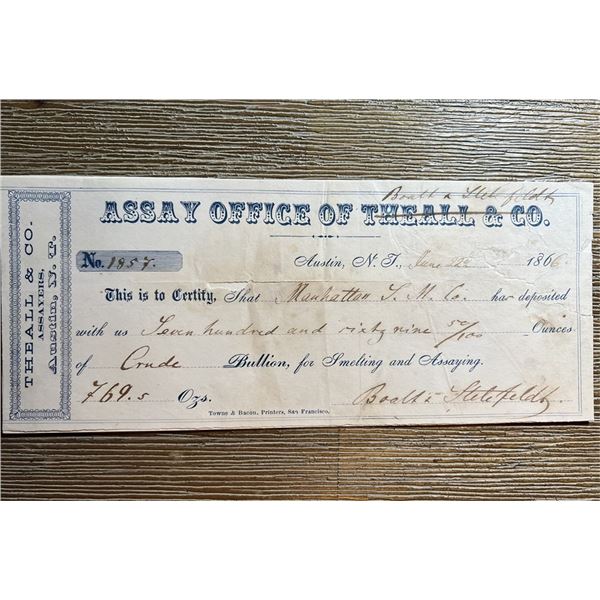 THEALL & CO.
ASSAYERS,
Austin, N. T.
Boalt & Stetefeldt
ASSAY OFFICE OF THEALL & CO.
No. 1857. Austin, N. T., June 22d 1866
This is to Certify, That Manhattan S. M. Co. has deposited
with us Seven hundred and sixty nine 50/100 Ounces
of Crude Bullion, for Smelting and Assaying.
769.5 Ozs. Boalt & Stetefeldt.
Towne & Bacon, Printers, San Francisco.